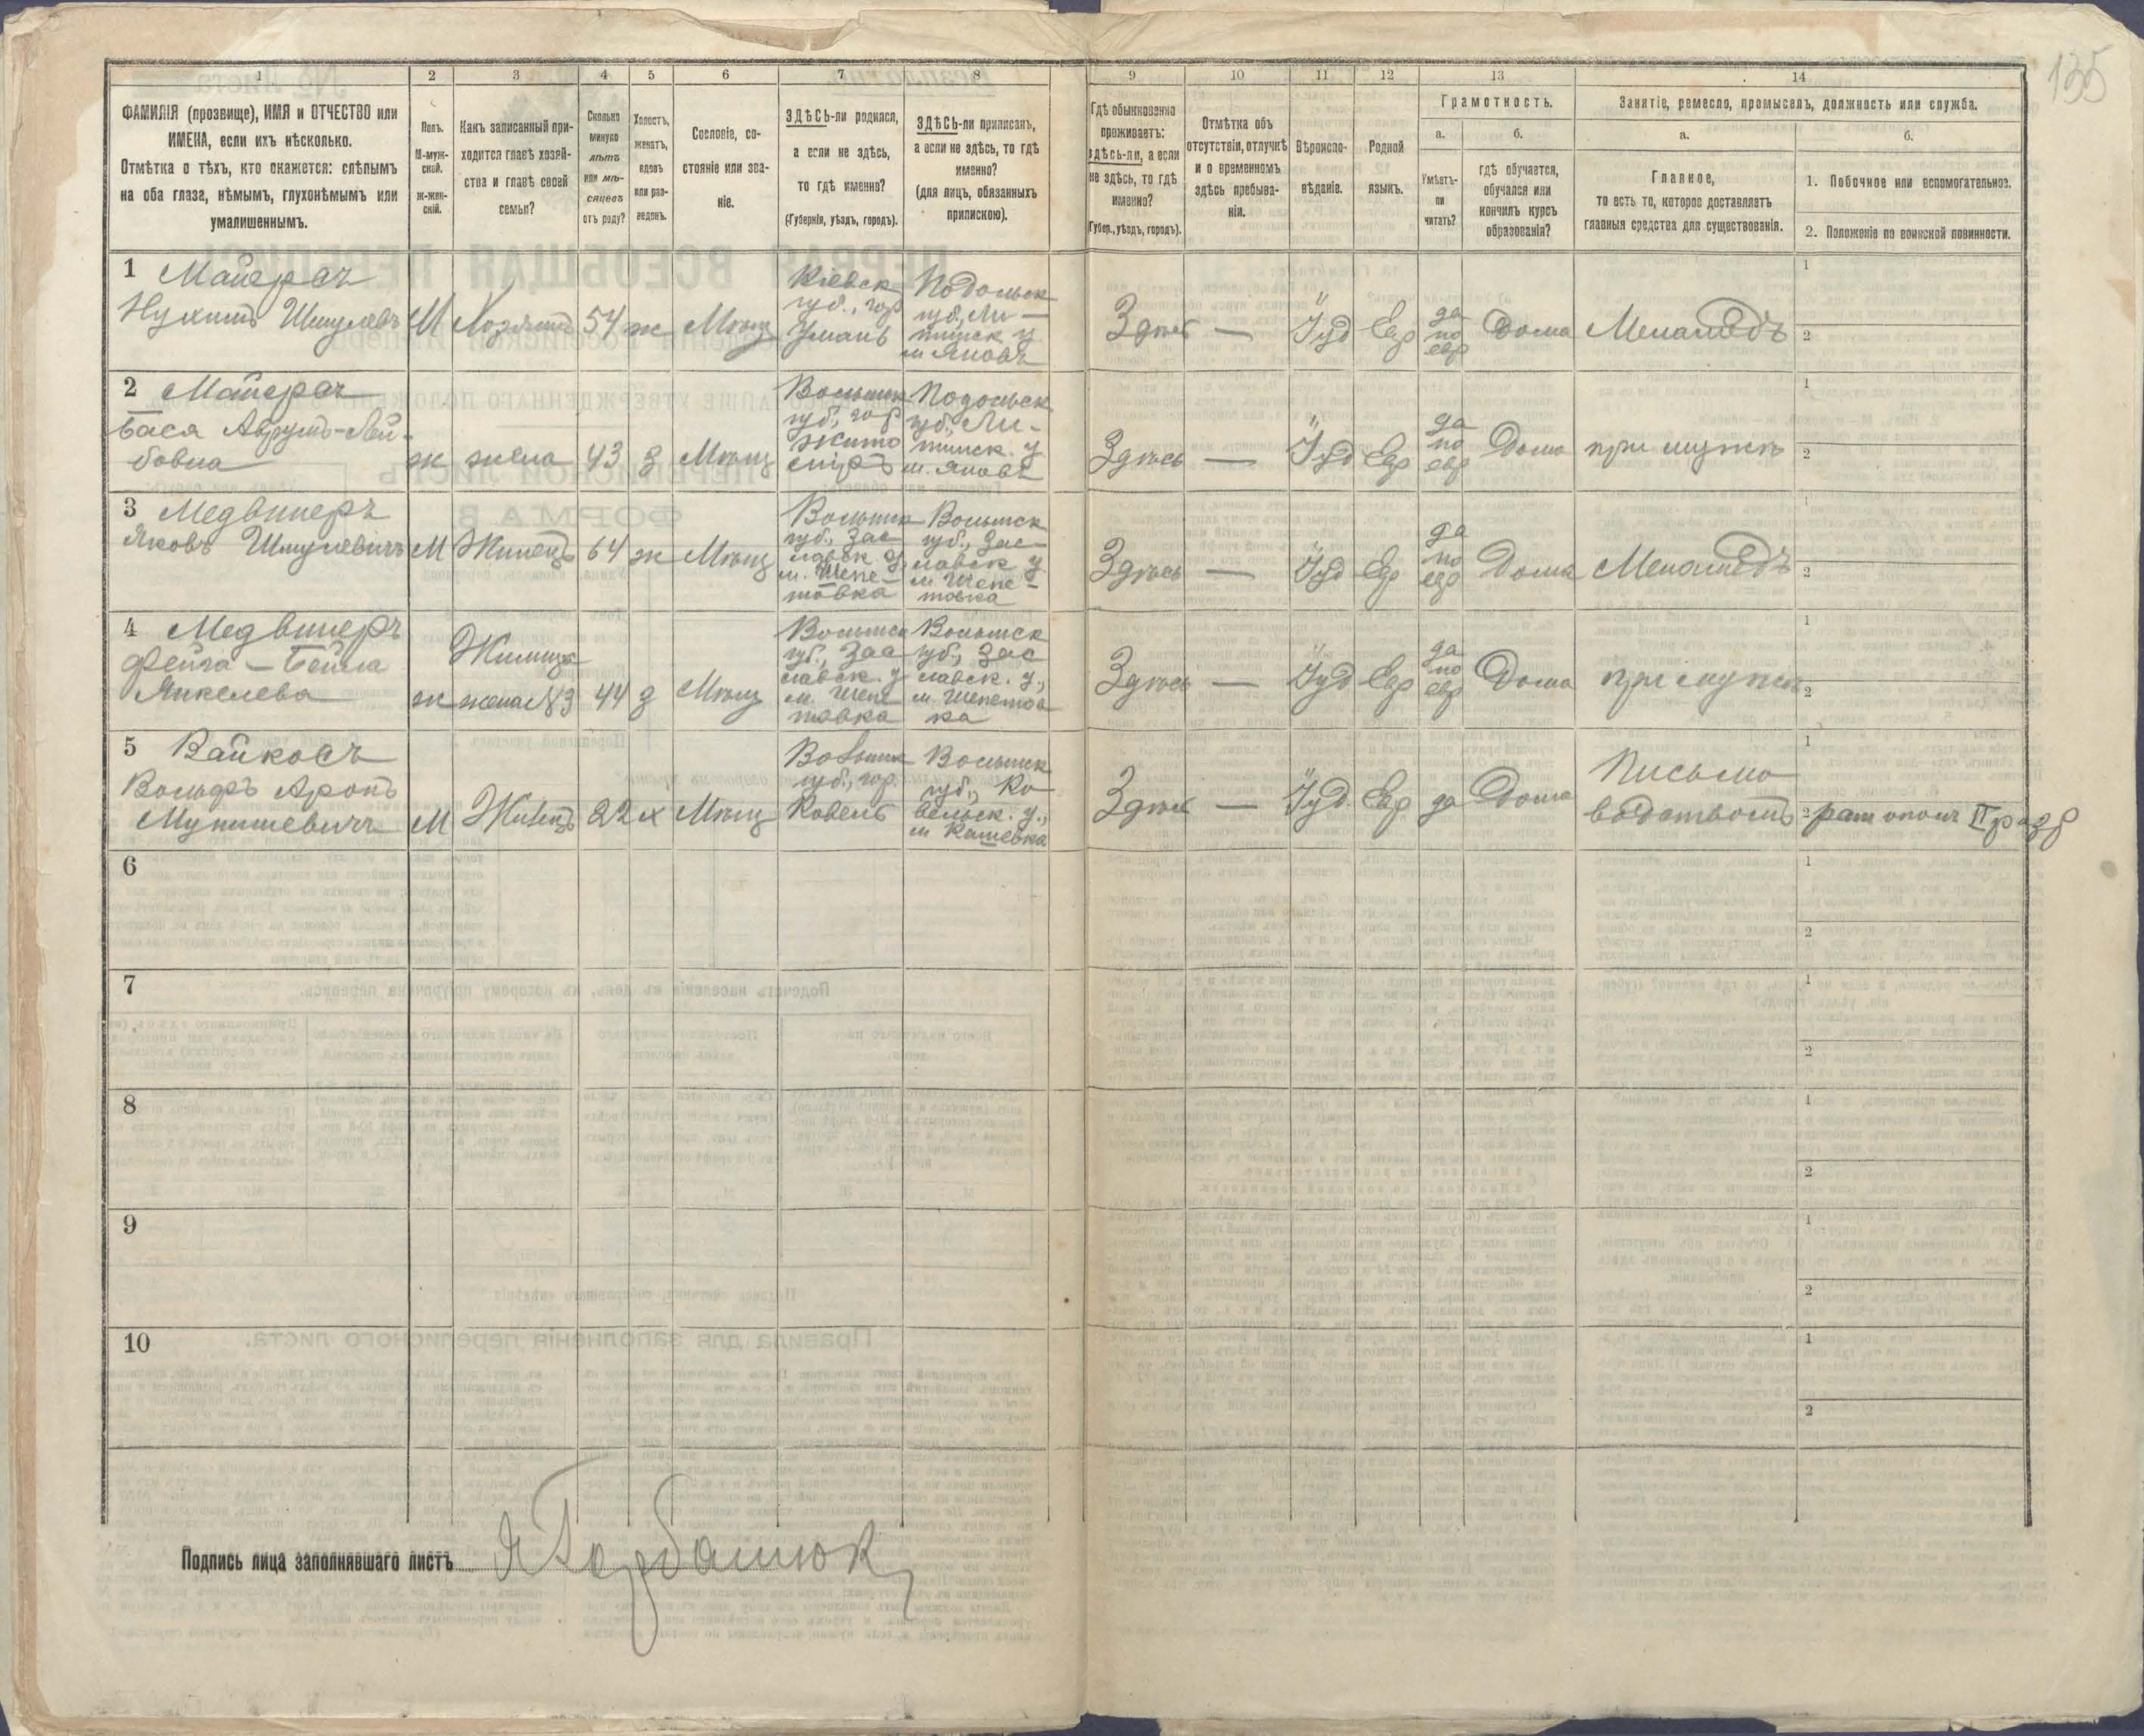 135
1 2 3 4 5 6 7 8 9 10 11 12 13 14
ФАМИЛІЯ (прозвище), ИМЯ и ОТЧЕСТВО или
ИМЕНА, если ихъ нѣсколько.
Отмѣтка о тѣхъ, кто окажется: слѣпымъ
на оба глаза, нѣмымъ, глухонѣмымъ или
умалишеннымъ.
Полъ.
М-муж-
ской.
Ж-жен-
скій.
Какъ записанный при-
ходится главѣ хозяй-
ства и главѣ своей
семьи?
Сколько
минуло
лѣтъ
или мѣ-
сяцевъ
отъ роду?
Холостъ,
женатъ,
вдовъ
или раз-
веденъ.
Сословіе, со-
стояніе или зва-
ніе.
ЗДѢСЬ-ли родился,
а если не здѣсь,
то гдѣ именно?
(Губернія, уѣздъ, городъ).
ЗДѢСЬ-ли приписанъ,
а если не здѣсь, то гдѣ
именно?
(для лицъ, обязанныхъ
припискою).
Гдѣ обыкновенно
проживаетъ:
здѣсь-ли, а если
не здѣсь, то гдѣ
именно?
(Губер., уѣздъ, городъ).
Отмѣтка объ
отсутствіи, отлучкѣ
и о временномъ
здѣсь пребыва-
ніи.
Вѣроиспо-
вѣданіе.
Родной
языкъ.
Грамотность.
а.
Умѣетъ-
ли
читать?
б.
гдѣ обучается,
обучался или
кончилъ курсъ
образованія?
Занятіе, ремесло, промыселъ, должность или служба.
а.
Главное,
то есть то, которое доставляетъ
главныя средства для существованія.
б.
1. Побочное или вспомогательное.
2. Положеніе по воинской повинности.
1 Майерсъ
Нухимъ Шмулевъ
М Хозяинъ 54 ж Мѣщ
Кіевск
губ., гор
Умань
Подольск
губ., Ли-
тинск у
м Яновъ
Здѣсь — Іуд Евр
да
по
евр
Дома Меламедъ
1
2
2 Майерсъ
Бася Аврумъ-Лей-
бовна
ж жена 43 з Мѣщ
Волынск
губ., гор
Жито
міръ
Подольск
губ., Ли-
тинск. у
м. Яновъ
Здѣсь — Іуд Евр
да
по
евр
Дома при мужѣ
1
2
3 Медвинеръ
Яковъ Шмулевичъ
М Жилецъ 64 ж Мѣщ
Волынск
губ., Зас
лавск у
м. Шепе-
товка
Волынск
губ., Зас-
лавск у
м Шепе-
товка
Здѣсь — Іуд Евр
да
по
евр
Дома Меламедъ
1
2
4 Медвинеръ
Фейга-Бейла
Янкелева
ж
Жилица
жена №3
44 з Мѣщ
Волынск
губ., Зас
лавск. у
м. Шепе
товка
Волынск
губ., Зас
лавск. у.,
м. Шепетов
ка
Здѣсь — Іуд Евр
да
по
евр
Дома при мужѣ
1
2
5 Вайкосъ
Вольфъ Аронъ
Мунишевичъ
М Жилецъ 22 х Мѣщ
Волынск
губ., гор
Ковель
Волынск
губ., Ко
вельск. у.,
м Кашевка
Здѣсь — Іуд Евр да Дома
Письмо
водствомъ
1
2 рат ополч II разр
6
1
2
7
1
2
8
1
2
9
1
2
10
1
2
Подпись лица заполнявшаго листъ